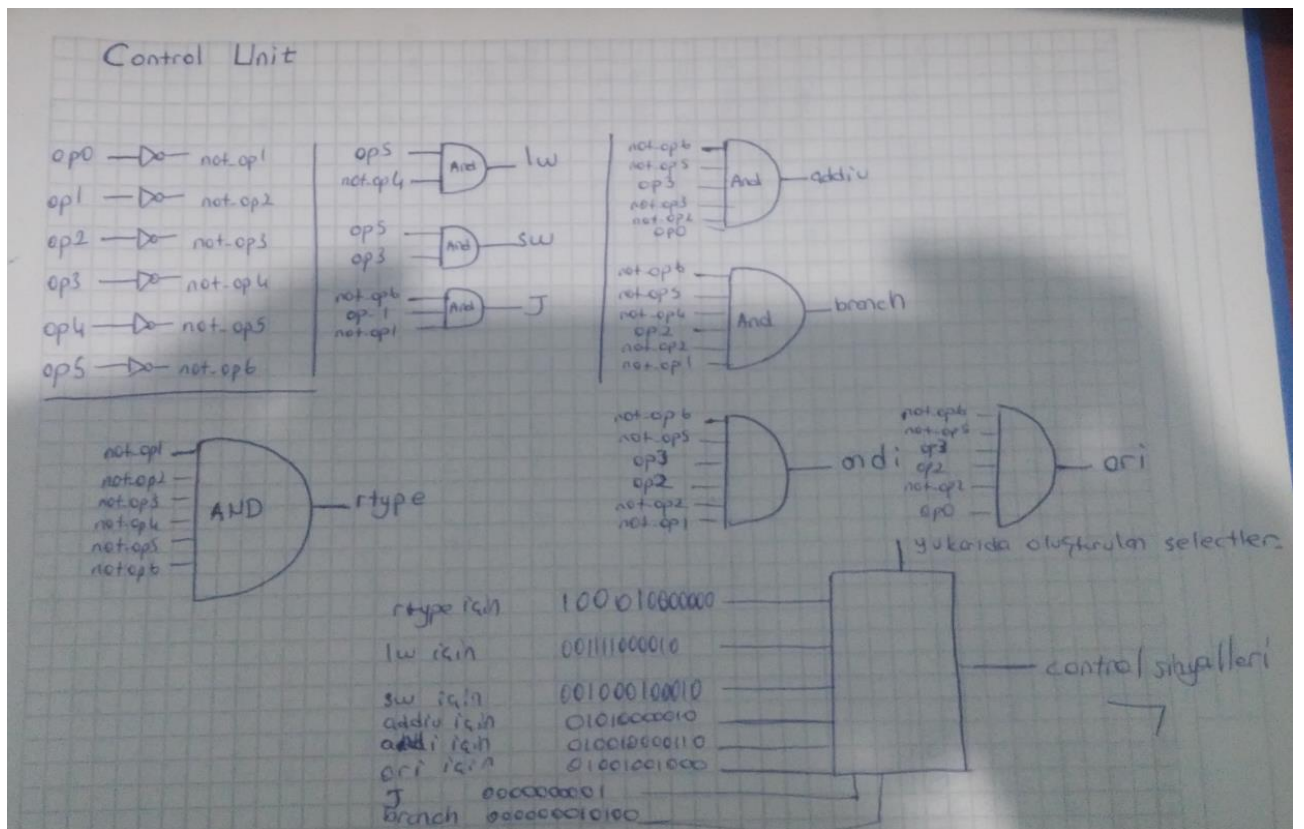 Control Unit
op0 not_op1
op1 not_op2
op2 not_op3
op3 not_op4
op4 not_op5
op5 not_op6
op5
not_op4
And
lw
op5
op3
And
sw
not_op6
op_1
not_op1
And
J
not_op6
not_op5
op3
not_op3
not_op2
op0
And
addiu
not_op6
not_op5
not_op4
op2
not_op2
not_op1
And
branch
not_op1
not_op2
not_op3
not_op4
not_op5
not_op6
AND
rtype
not_op6
not_op5
op3
op2
not_op2
not_op1
andi
not_op6
not_op5
op3
op2
not_op2
op0
ori
yukarıda oluşturulan selectler
rtype için 100010000000
lw için 001111000010
sw için 001000100010
addiu için 01010000010
andi için 010010000110
ori için 01001001000
J 0000000001
branch 000000010100
control sinyalleri